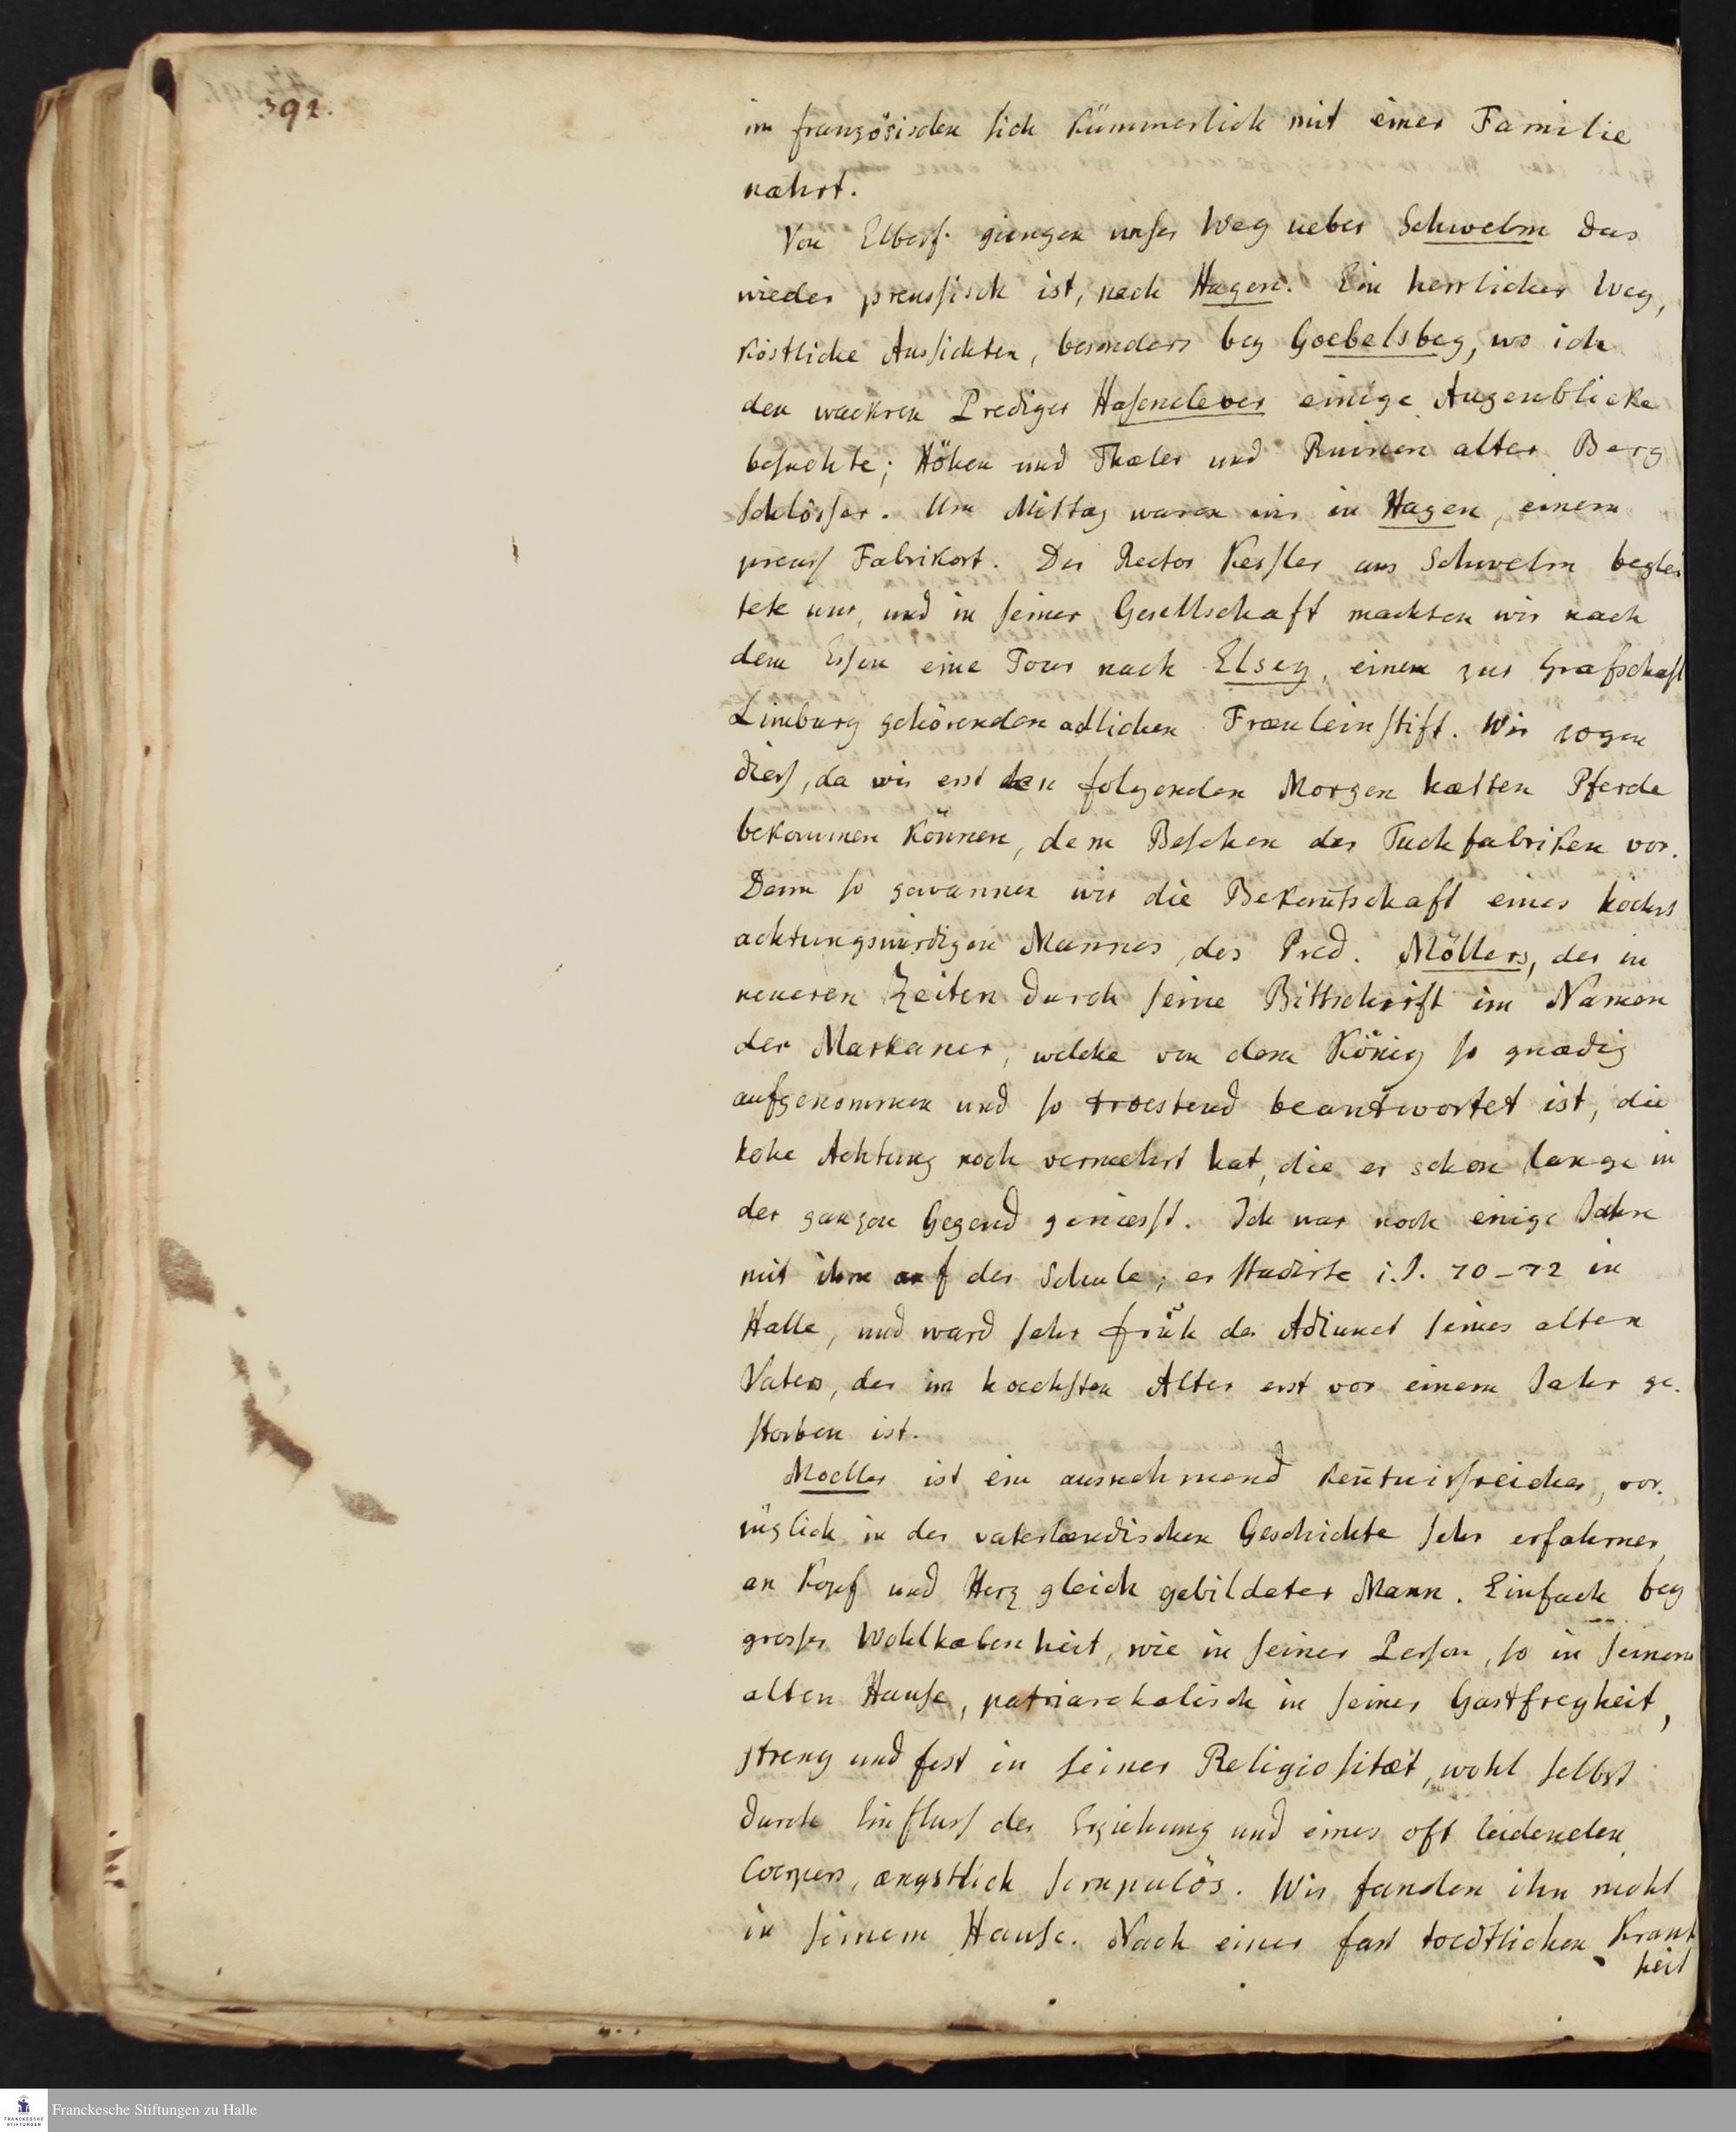 392.
im französischen sich kümmerlich mit einer Familie
næhrt.
Von Elberf. giengen unser Weg ueber Schwelm das
wieder preussisch ist, nach Hagen. Ein herrlicher Weg,
köstliche Aussichten, besonders bey Goebelsbeg, wo ich
den wackren Prediger Hasenclever einige Augenblicke
besuchte; Höhen und Thæler und Ruinen alter Berg
schlösser. Um Mittag waren wir in Hagen, einem
preuss Fabrikort. Der Rector Kessler aus Schwelm beglei
tete uns, und in seiner Gesellschaft machten wir nach
dem Essen eine Tour nach Elsey, einem zur Grafschaft
Limburg gehörenden adlichen Fræuleinstift. Wir zogen
diess, da wir erst den folgenden Morgen hætten Pferde
bekommen können, dem Besehen der Tuchfabriken vor.
Denn so gewannen wir die Bekan̄tschaft eines höchst
achtungswürdigen Mannes, des Pred. Möllers, der in
neueren Zeiten durch seine Bittschrift im Namen
der Markaner, welche von dem König so gnædig
aufgenommen und so troestend beantwortet ist, die
hohe Achtung noch vermehrt hat, die er schon lange in
der ganzen Gegend geniesst. Ich war noch einige Jahre
mit ihm auf der Schule; er studirte i. J. 70-72 in
Halle, und ward sehr früh der Adiunct seines alten
Vaters, der im hoechsten Alter erst vor einem Jahr ge-
storben ist.
Moeller ist ein ausnehmend ken̄tnissreicher, vor-
züglich in der vaterlændischen Geschichte sehr erfahrner,
an Kopf und Herz gleich gebildeter Mann. Einfach bey
grosser Wohlhabenheit, wie in seiner Person, so in seinem
alten Hause, patriarchalisch in seiner Gastfreyheit,
streng und fest in seiner Religiositæt, wohl selbst
durch Einfluss der Erziehung und eines oft leidenden
Coerpers, ængstlich scrupulös. Wir fanden ihn nicht
in seinem Hause. Nach einer fast toedtlichen Krank
heit
Franckesche Stiftungen zu Halle
FRANCKESCHE
STIFTUNGEN